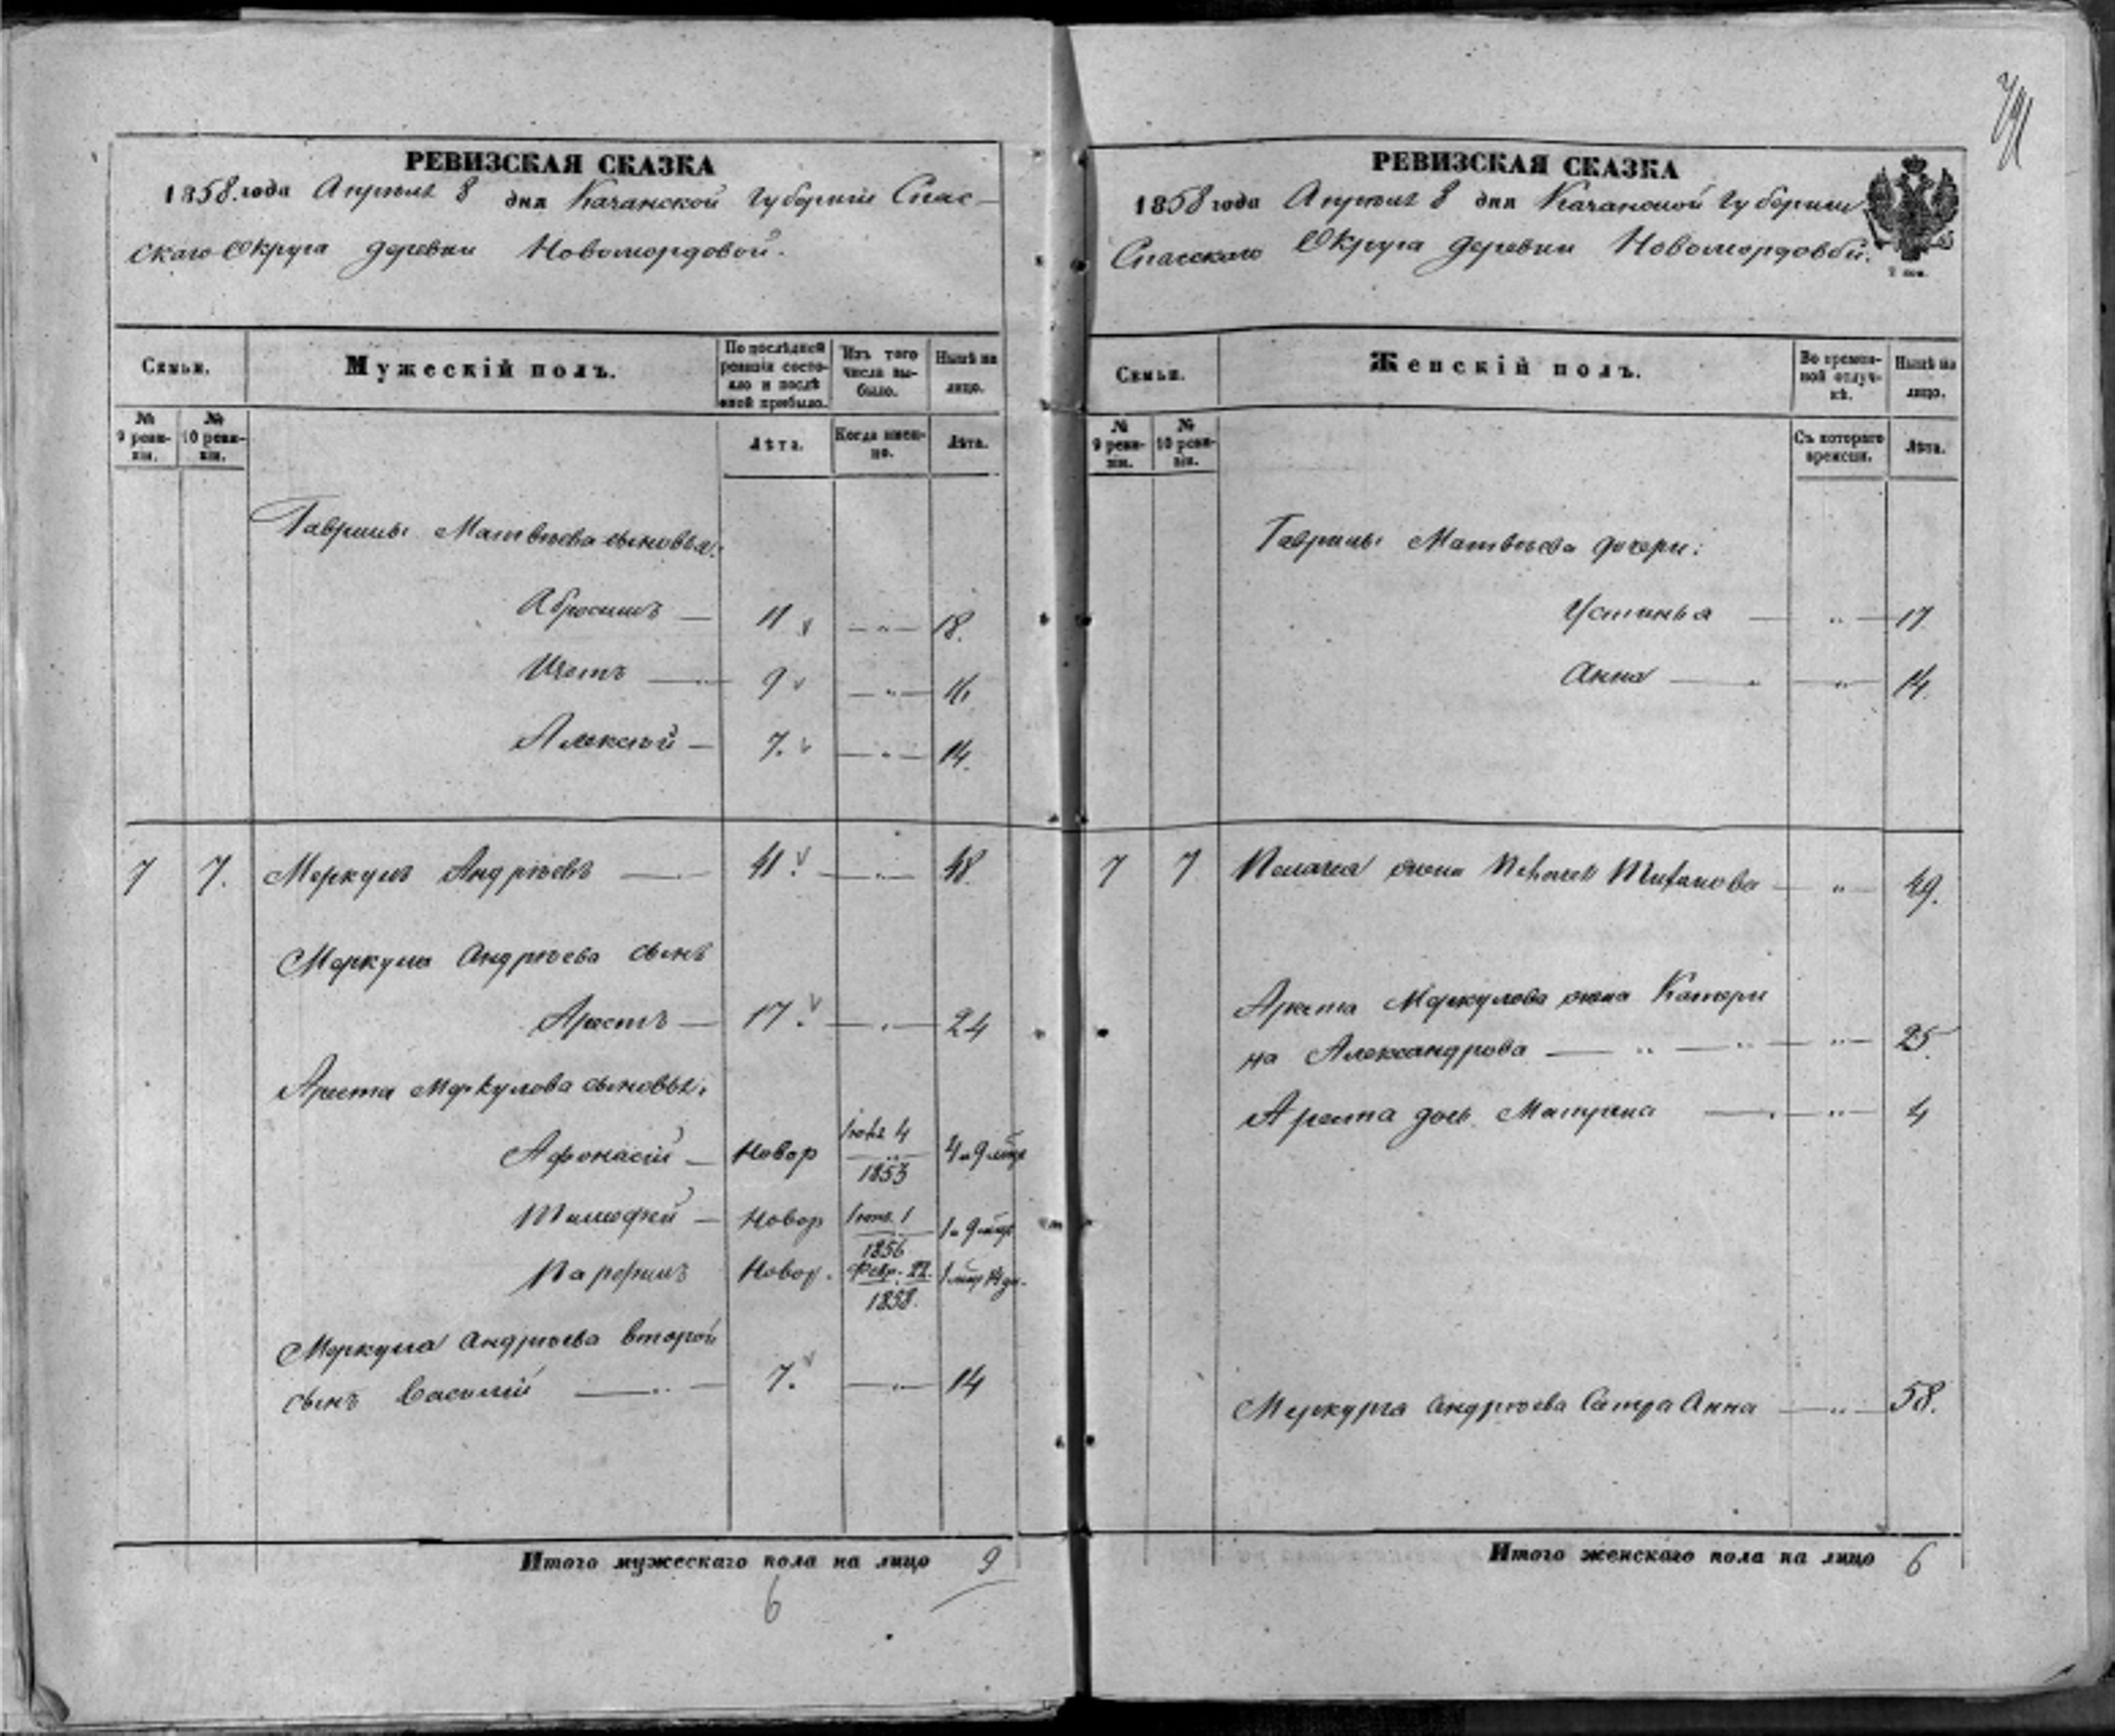 РЕВИЗСКАЯ СКАЗКА
1858 года Апрѣля 8 дня Казанской Губерніи Спас-
скаго Округа деревни Новомордовой.
Семьи.
Мужескій полъ.
По послѣдней ревизіи состояло и послѣ оной прибыло.
Изъ того числа выбыло.
Нынѣ на лицо.
№ 9 ревизіи.
№ 10 ревизіи.
Лѣта.
Когда именно.
Лѣта.
Гаврилы Матвѣева сыновья:
Абросимъ — 11 — „ — 18.
Изотъ — 9 — „ — 16.
Алексѣй — 7. — „ — 14.
7 7. Меркулъ Андрѣевъ — 41. — „ — 48.
Меркула Андрѣева сынъ
Арестъ — 17. — „ — 24
Ареста Меркулова сыновья:
Афонасій — Новор 4 1853 4 и 9 мѣц
Тимофей — Новор 1 1856 1 и 9 мѣц
Парфенъ Новор. Февр. 22. 1858. 1 мѣц 14 дн.
Меркула Андрѣева второй
сынъ Василій — „ — 7. — „ — 14
Итого мужескаго пола на лицо 9
6
РЕВИЗСКАЯ СКАЗКА
1858 года Апрѣля 8 дня Казанской Губерніи
Спасскаго Округа деревни Новомордовой.
Семьи.
Женскій полъ.
Во временной отлучкѣ.
Нынѣ на лицо.
№ 9 ревизіи.
№ 10 ревизіи.
Съ котораго времени.
Лѣта.
Гаврилы Матвѣева дочери:
Устинья — „ — 17
Анна — „ — „ — 14.
7 7 Пелагея жена — „ — 49.
Ареста Меркулова жена Катери
на Александрова — „ — „ — „ — 25.
Ареста дочь Матрена — „ — 4
Меркула Андрѣева Сестра Анна — „ — 58.
Итого женскаго пола на лицо 6